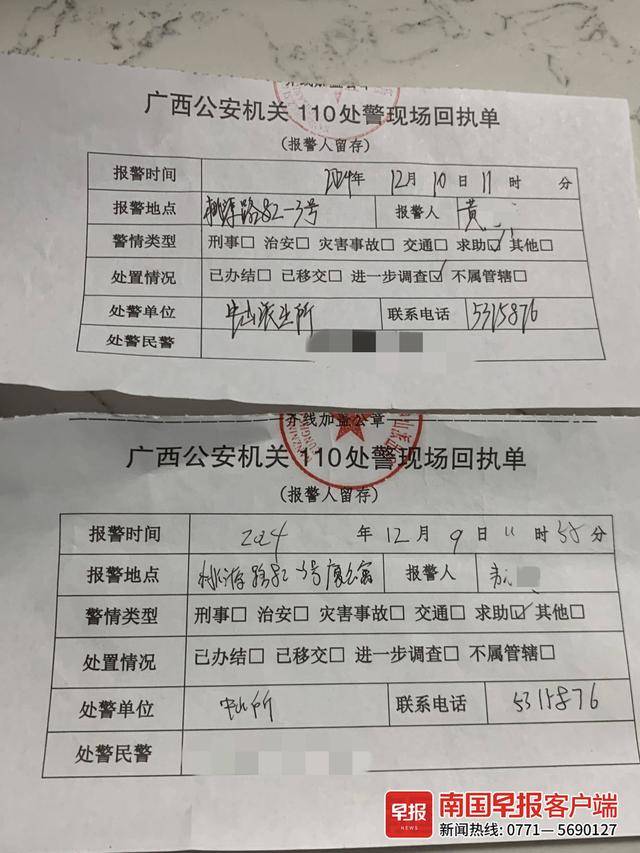 齐线加盖公章
广西公安机关 110处警现场回执单
(报警人留存)
报警时间 2024年 12月 10日 11时 分
报警地点 桃源路82-3号 报警人 黄
警情类型 刑事□ 治安□ 灾害事故□ 交通□ 求助☑ 其他□
处置情况 已办结□ 已移交□ 进一步调查☑ 不属管辖□
处警单位 中山派出所 联系电话 5315876
处警民警
齐线加盖公章
广西公安机关 110处警现场回执单
(报警人留存)
报警时间 2024 年 12月 9日 11时 55分
报警地点 桃源路82-3号 报警人
警情类型 刑事□ 治安□ 灾害事故□ 交通□ 求助☑ 其他□
处置情况 已办结□ 已移交□ 进一步调查□ 不属管辖□
处警单位 中山所 联系电话 5315876
处警民警
早报 NEWS 南国早报客户端
新闻热线: 0771—5690127